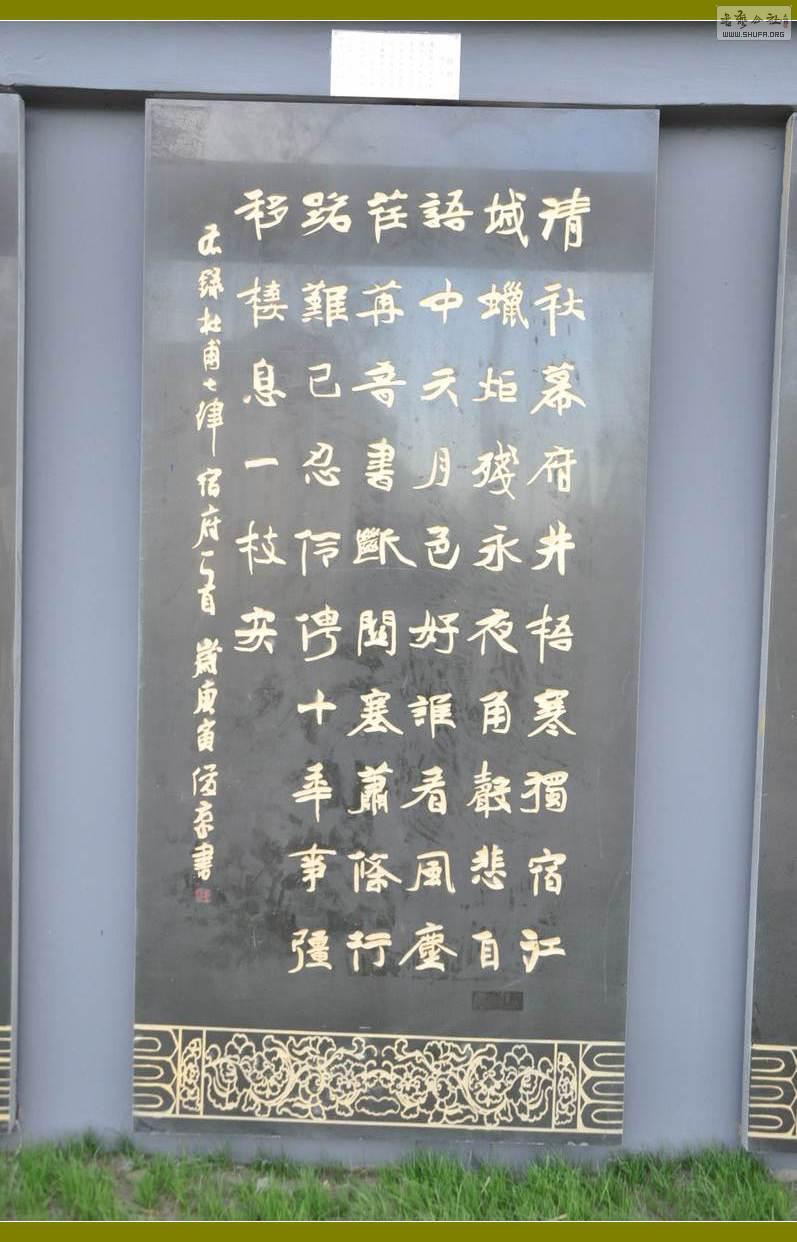 清秋幕府井梧寒獨宿江
城蠟炬殘永夜角聲悲自
語中天月色好誰看風塵
荏苒音書斷關塞蕭條行
路難已忍伶俜十年事彊
移棲息一枝安
右錄杜甫七律宿府一首 歲庚寅 書
書藝公社
WWW.SHUFA.ORG